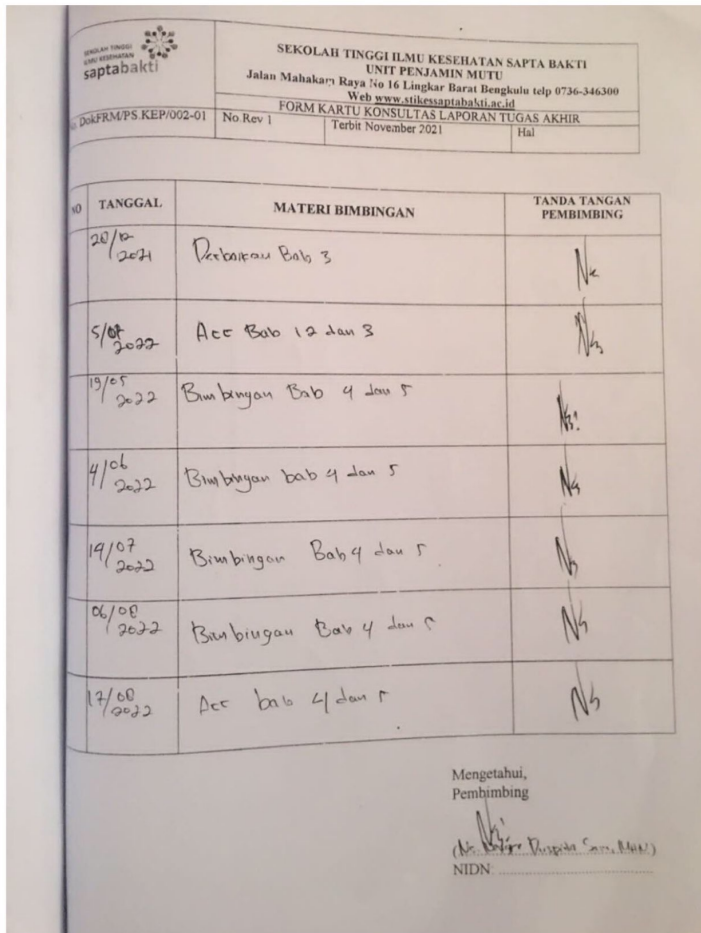 SEKOLAH TINGGI
ILMU KESEHATAN
saptabakti
SEKOLAH TINGGI ILMU KESEHATAN SAPTA BAKTI
UNIT PENJAMIN MUTU
Jalan Mahakam Raya No 16 Lingkar Barat Bengkulu telp 0736-346300
Web www.stikessaptabakti.ac.id
FORM KARTU KONSULTAS LAPORAN TUGAS AKHIR
DokFRM/PS.KEP/002-01 No.Rev 1 Terbit November 2021 Hal
NO TANGGAL MATERI BIMBINGAN TANDA TANGAN
PEMBIMBING
20/12
2021 Perbaikan Bab 3
2022 Acc Bab 1 2 dan 3
19/05
2022 Bimbingan Bab 4 dan 5
4/06
2022 Bimbingan bab 4 dan 5
19/07
2022 Bimbingan Bab 4 dan 5
06/08
2022 Bimbingan Bab 4 dan 5
17/08
2022 Acc bab 4 dan 5
Mengetahui,
Pembimbing
Puspita Sari
NIDN